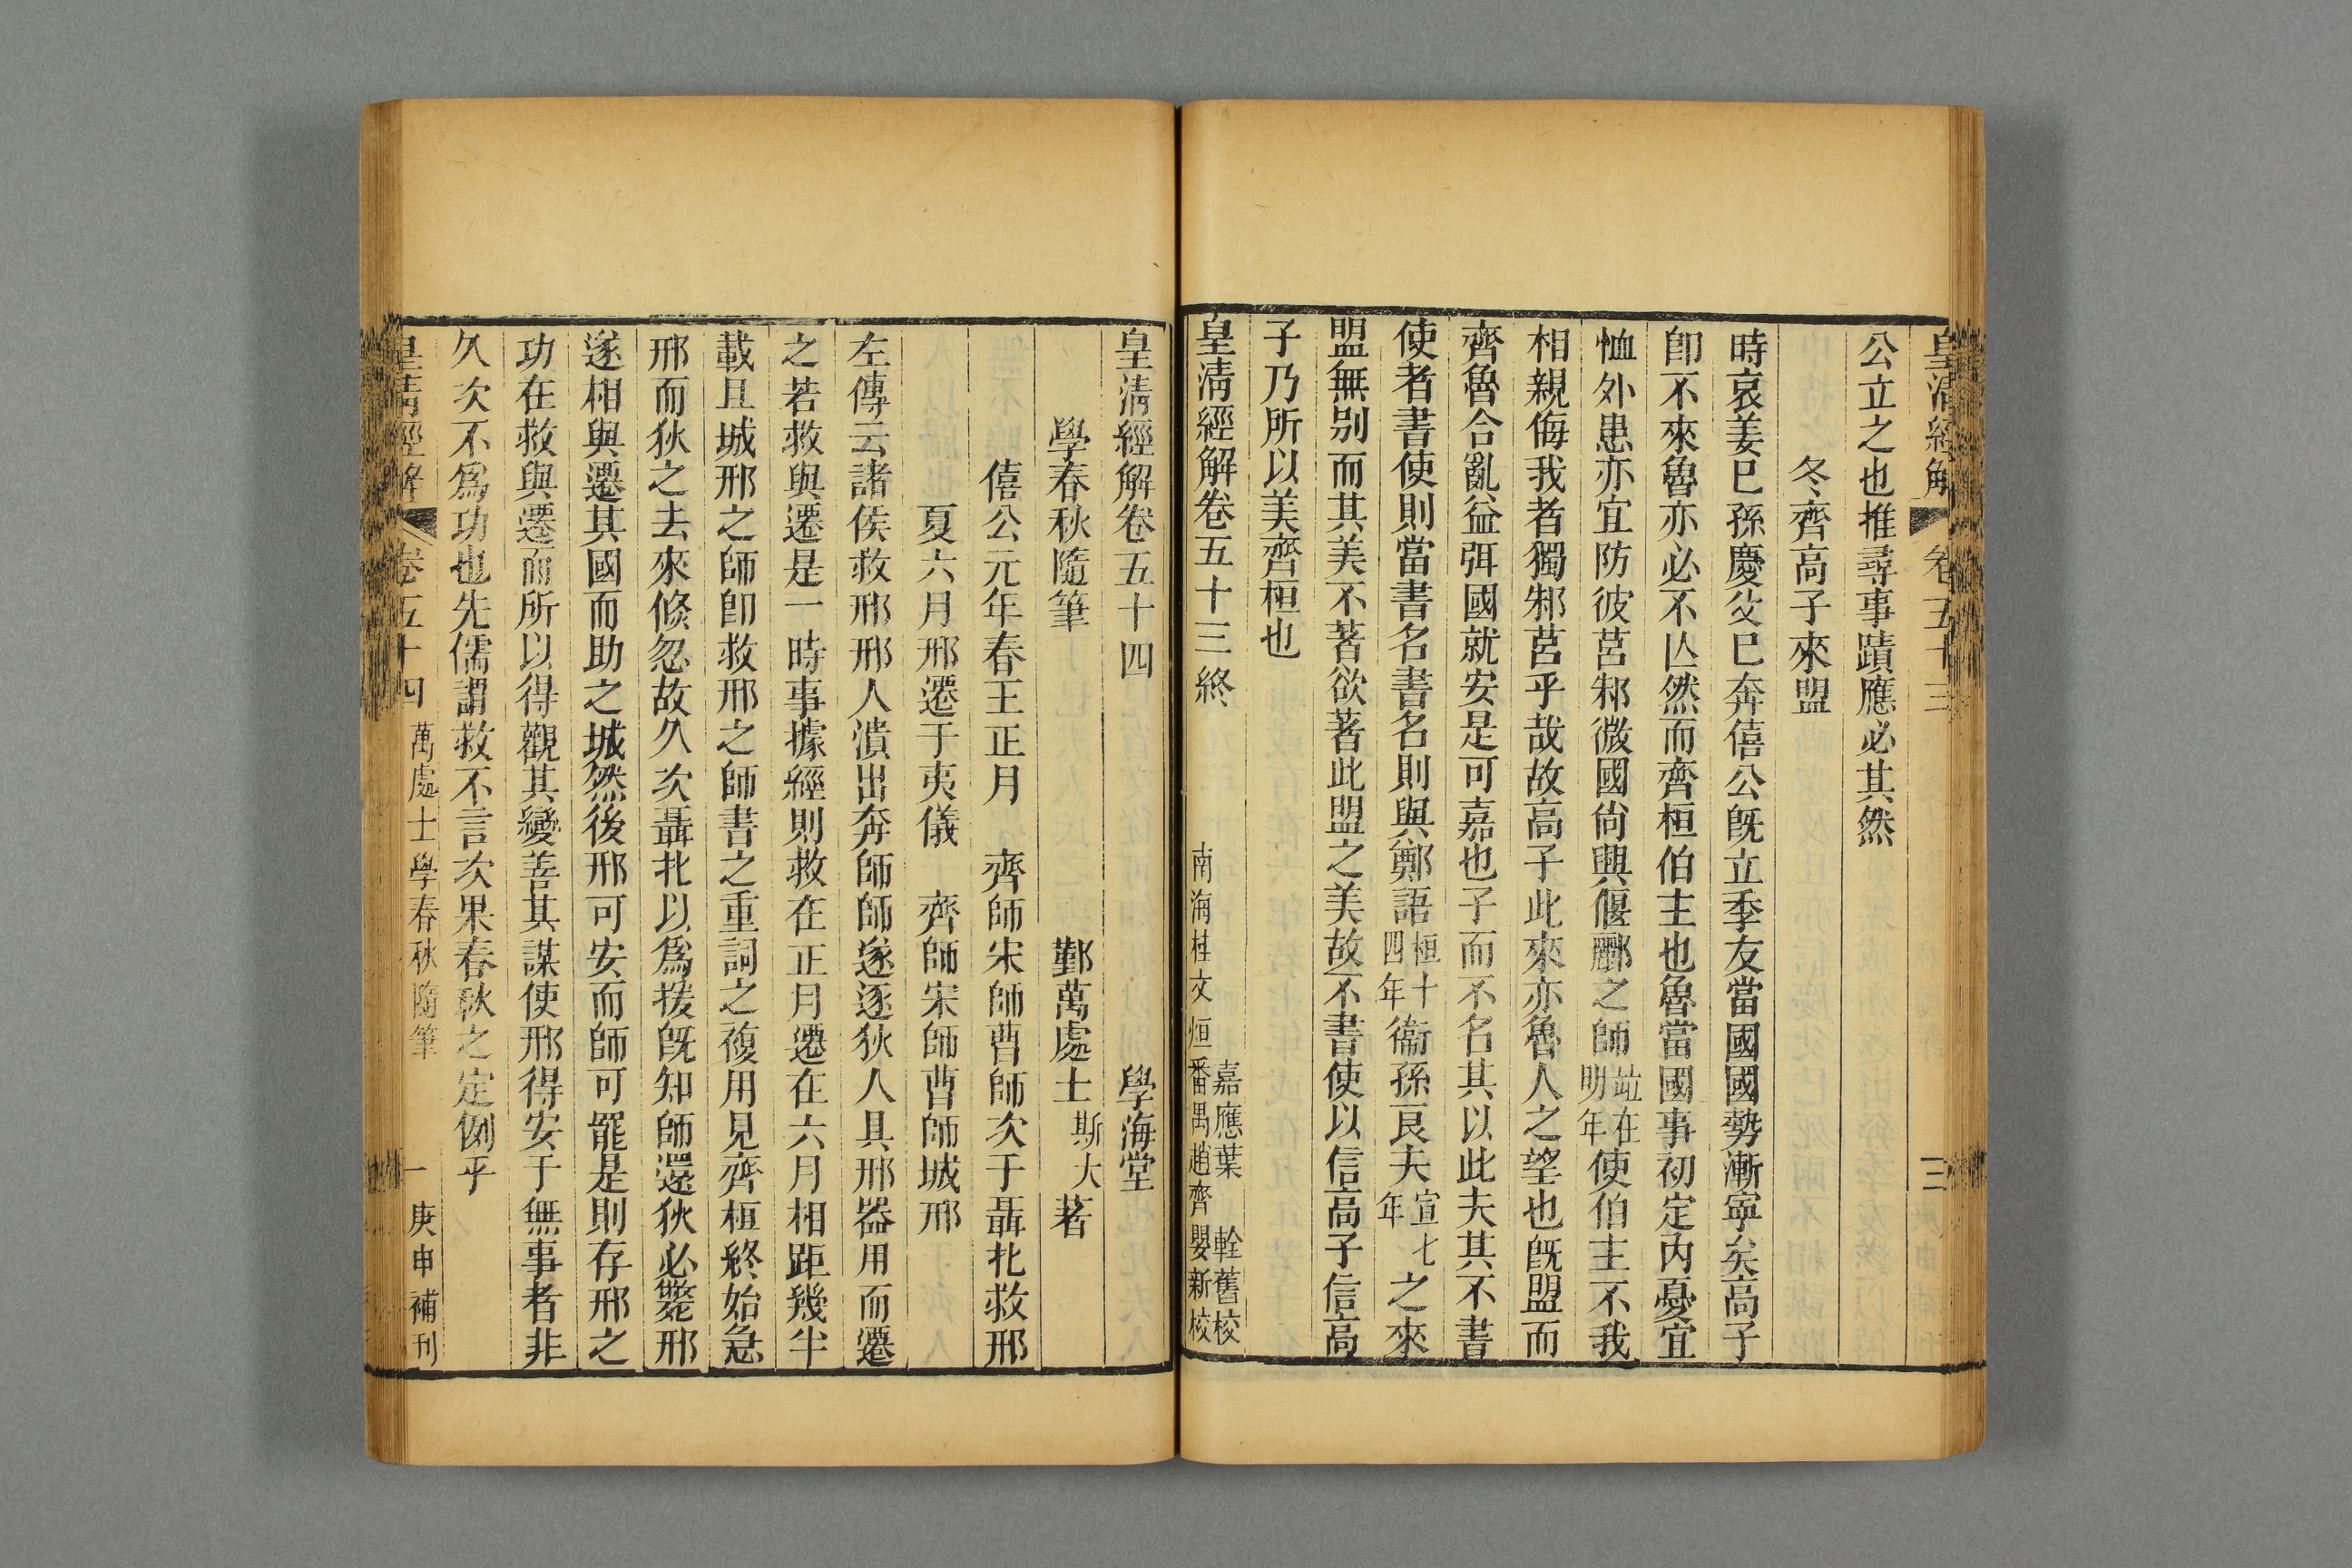 皇清經解 卷五十三 三
公立之也推尋事蹟應必其然
冬齊高子來盟
時哀姜巳孫慶父巳奔僖公旣立季友當國國勢漸寧矣高子
卽不來魯亦必不亾然而齊桓伯主也魯當國事初定內憂宜
恤外患亦宜防彼莒邾微國尙興偃酈之師竝在明年使伯主不我
相親侮我者獨邾莒乎哉故高子此來亦魯人之望也旣盟而
齊魯合亂益弭國就安是可嘉也子而不名其以此夫其不書
使者書使則當書名書名則與鄭語桓十四年衞孫良夫宣七年之來
盟無别而其美不著欲著此盟之美故不書使以信高子信高
子乃所以美齊桓也
皇清經解卷五十三終
嘉應葉 輇舊校
南海桂文烜番禺趙齊嬰新校
皇清經解卷五十四 學海堂
學春秋隨筆 鄞萬處士斯大著
僖公元年春王正月 齊師宋師曹師次于聶北救邢
夏六月邢遷于夷儀 齊師宋師曹師城邢
左傳云諸侯救邢邢人潰出奔師師遂逐狄人具邢器用而遷
之若救與遷是一時事據經則救在正月遷在六月相距幾半
載且城邢之師卽救邢之師書之重詞之複用見齊桓終始急
邢而狄之去來倐忽故久次聶北以爲援旣知師還狄必斃邢
遂相與遷其國而助之城然後邢可安而師可罷是則存邢之
功在救與遷而所以得觀其變善其謀使邢得安于無事者非
久次不爲功也先儒謂救不言次果春秋之定例乎
皇清經解 卷五十四 萬處士學春秋隨筆 一 庚申補刊